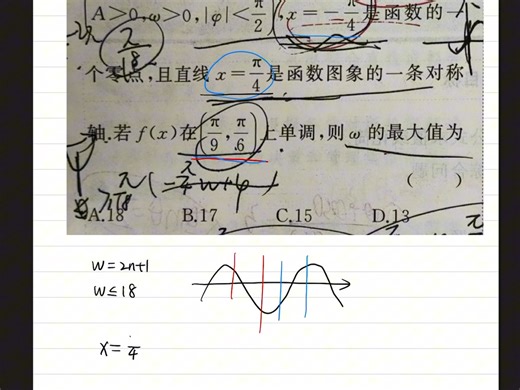 A>0,ω>0,|φ|<π/2, x=-π/4 是函数的一
个零点,且直线 x=π/4 是函数图象的一条对称
轴.若 f(x)在[π/9,π/6]上单调,则 ω 的最大值为
( )
A.18 B.17 C.15 D.13
π/18
π/4 w+φ
w=2n+1
w≤18
x=π/4